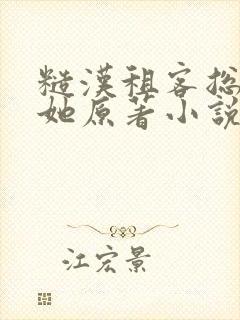 糙漢租客总
她原著小說
江宏景